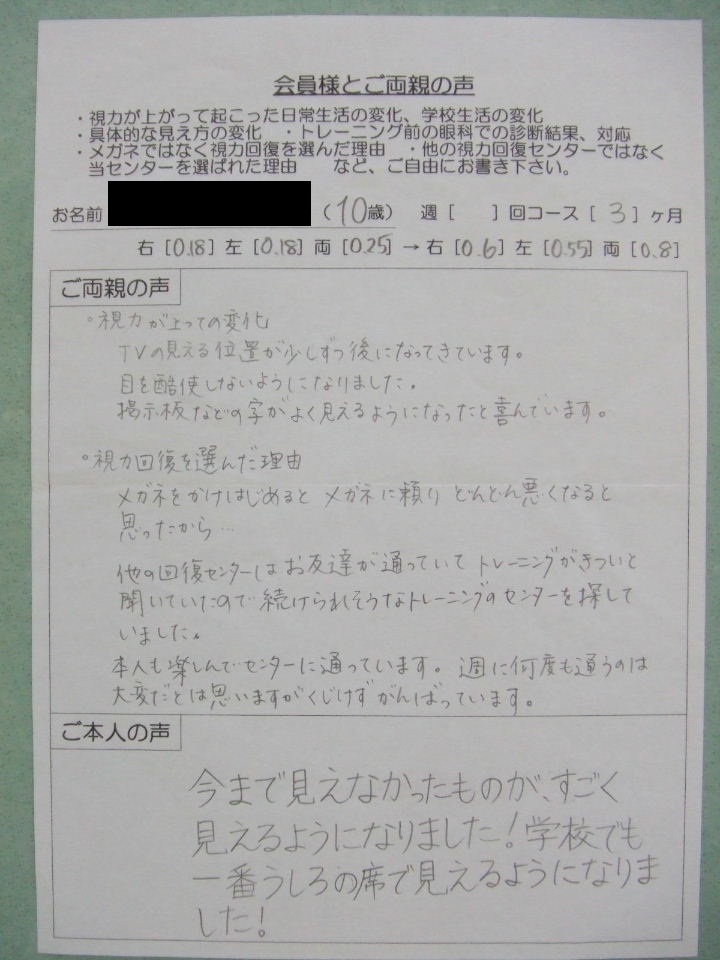 会員様とご両親の声
・視力が上がって起こった日常生活の変化、学校生活の変化
・具体的な見え方の変化　・トレーニング前の眼科での診断結果、対応
・メガネではなく視力回復を選んだ理由　・他の視力回復センターではなく
当センターを選ばれた理由　　など、ご自由にお書き下さい。
お名前　（10歳）　週［　］回コース［3］ヶ月
右［0.18］左［0.18］両［0.25］→右［0.6］左［0.55］両［0.8］
ご両親の声
○視力が上っての変化
TVの見える位置が少しずつ後になってきています。
目を酷使しないようになりました。
掲示板などの字がよく見えるようになったと喜んでいます。
○視力回復を選んだ理由
メガネをかけはじめると メガネに頼り どんどん悪くなると
思ったから…
他の回復センターはお友達が通っていて トレーニングがきついと
聞いていたので続けられそうなトレーニングのセンターを探して
いました。
本人も楽しんでセンターに通っています。週に何度も通うのは
大変だとは思いますがくじけずがんばっています。
ご本人の声
今まで見えなかったものが、すごく
見えるようになりました！学校でも
一番うしろの席で見えるようになりま
した！